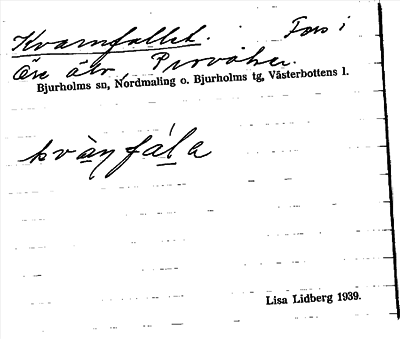 Kvarnfallet. Fors i
Öre älv,
Bjurholms sn, Nordmaling o. Bjurholms tg, Västerbottens l.
Lisa Lidberg 1939.